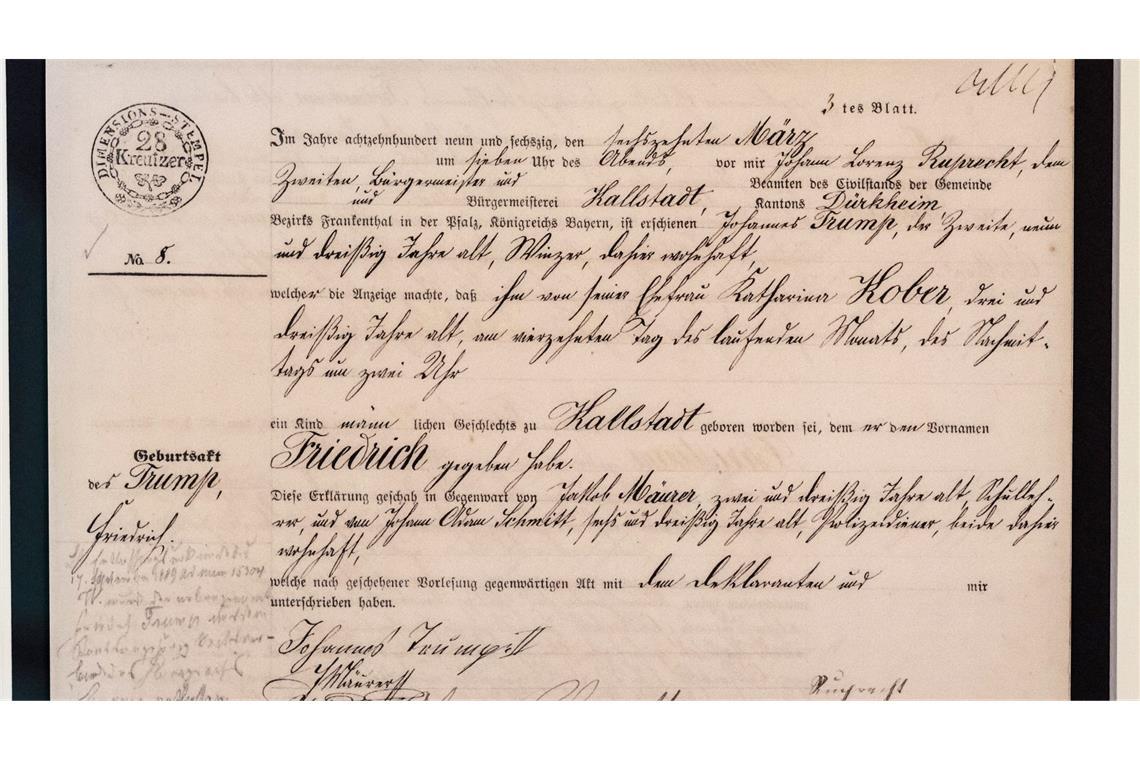 3 tes Blatt.
DIMENSIONS-STEMPEL
28
Kreutzer
Im Jahre achtzehnhundert neun und sechszig, den sechszehnten März
um sieben Uhr des Abends, vor mir Johann Lorenz Ruprecht, dem
Zweiten, Bürgermeister und Beamten des Civilstands der Gemeinde
und Bürgermeisterei Kallstadt, Kantons Dürkheim
Bezirks Frankenthal in der Pfalz, Königreichs Bayern, ist erschienen Johannes Trump, der Zweite, neun
und dreißig Jahre alt, Winzer, dahier wohnhaft,
No. 8.
welcher die Anzeige machte, daß ihm von seiner Ehefrau Katharina Kober, drei und
dreißig Jahre alt, am vierzehnten Tag des laufenden Monats, des Nachmit-
tags um zwei Uhr
ein Kind männlichen Geschlechts zu Kallstadt geboren worden sei, dem er den Vornamen
Friedrich gegeben habe.
Geburtsakt
des Trump,
Friedrich.
Diese Erklärung geschah in Gegenwart von Jakob Mäurer, zwei und dreißig Jahre alt, Schulleh-
rer, und von Johann Adam Schmitt, sechs und dreißig Jahre alt, Polizeidiener, beide dahier
wohnhaft,
welche nach geschehener Vorlesung gegenwärtigen Akt mit dem Deklaranten und mir
unterschrieben haben.
Johannes Trump II
Mäurer
Ruprecht